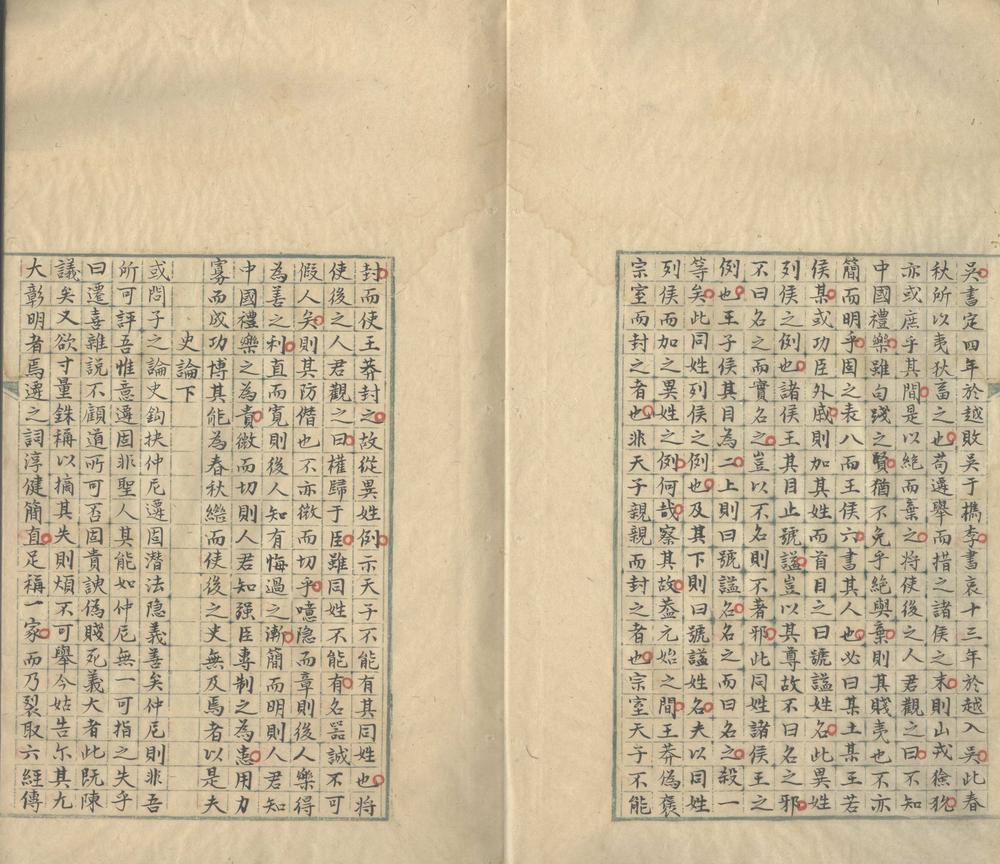 吳書定四年於越敗吳于檇李書哀十三年於越入吳此春
秋所以夷狄畜之也苟遷舉而措之諸侯之末則山戎獫狁
亦或庶乎其間是以絕而棄之將使後之人君觀之曰不知
中國禮樂雖勾踐之賢猶不免乎絕與棄則其賤夷也不亦
簡而明乎固之表八而王侯六書其人也必曰某土某王若
侯某或功臣外戚則加其姓而首目之曰號謚姓名此異姓
列侯之例也諸侯王其目止號謚豈以其尊故不曰名之邪
不曰名之而實名之豈以不名則不著邪此同姓諸侯王之
例也王子侯其目為二上則曰號謚名名之而曰名之殺一
等矣此同姓列侯之例也及其下則曰號謚姓名夫以同姓
列侯而加之異姓之例何哉察其故葢元始之間王莽偽褒
宗室而封之者也非天子親親而封之者也宗室天子不能
封而使王莽封之故從異姓例示天子不能有其同姓也將
使後之人君觀之曰權歸于臣雖同姓不能有名器誠不可
假人矣則其防僭也不亦微而切乎噫隐而章則後人樂得
為善之利直而寬則後人知有悔過之漸簡而明則人君知
中國禮樂之為貴微而切則人君知强臣專制之為患用力
寡而成功博其能為春秋繼而使後之史無及焉者以是夫
史論下
或問子之論史鈎抉仲尼遷固潛法隐義善矣仲尼則非吾
所可評吾惟意遷固非聖人其能如仲尼無一可指之失乎
曰遷喜雜說不顧道所可否固貴諛偽賤死義大者此旣陳
議矣又欲寸量銖稱以摘其失則煩不可舉今姑告尓其尤
大彰明者焉遷之詞淳健簡直足稱一家而乃裂取六經傳